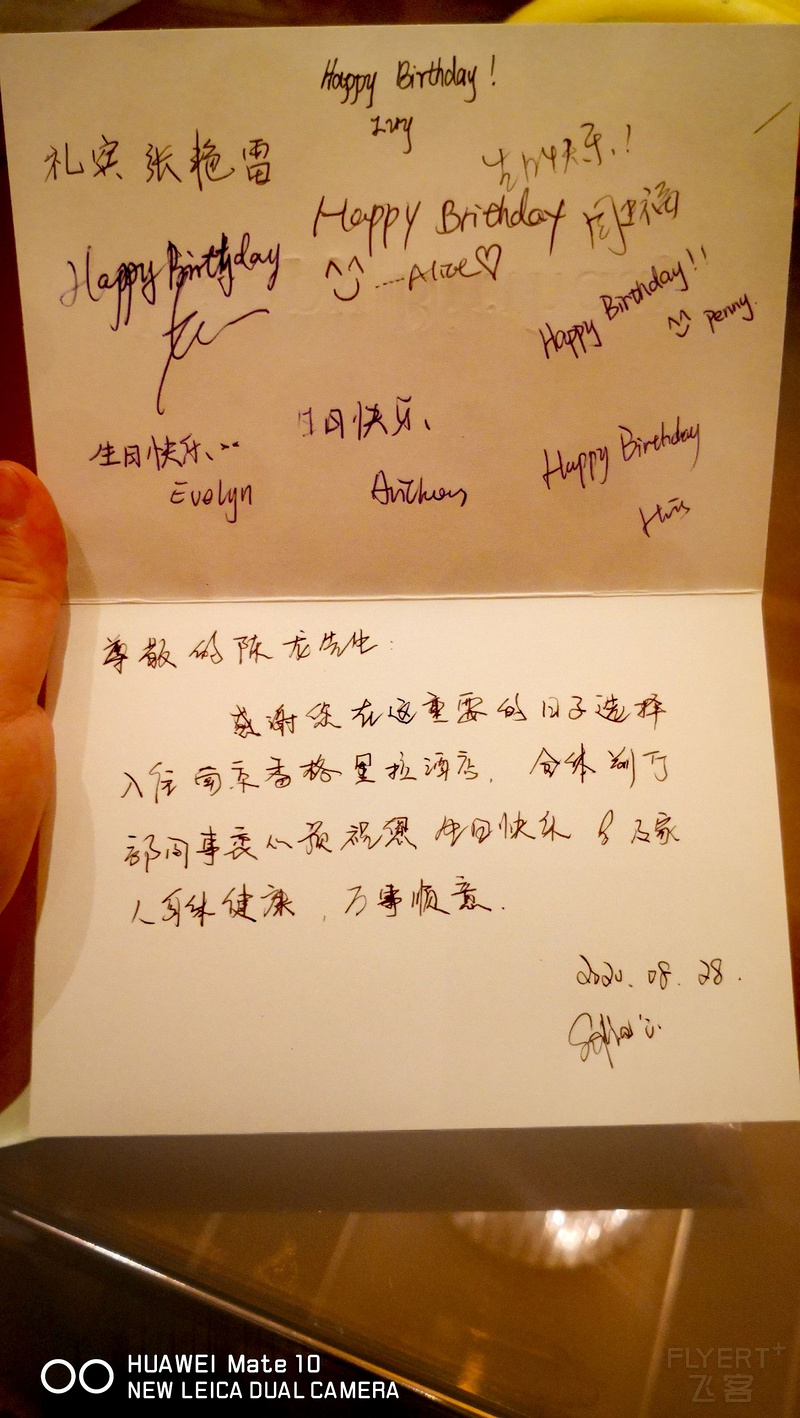 Happy Birthday!
Ivy
礼宾 张艳雷
生日快乐!
Happy Brithday
Alice♡
Happy Birthday
Happy Birthday!!
Penny.
生日快乐、
Evelyn
生日快乐、
Anthony
Happy Birthday
尊敬的陈龙先生:
感谢您在这重要的日子选择
入住南京香格里拉酒店, 全体前厅
部同事衷心预祝您 生日快乐 及家
人身体健康, 万事顺意.
2020.08.28.
HUAWEI Mate 10
NEW LEICA DUAL CAMERA
FLYERT+
飞客